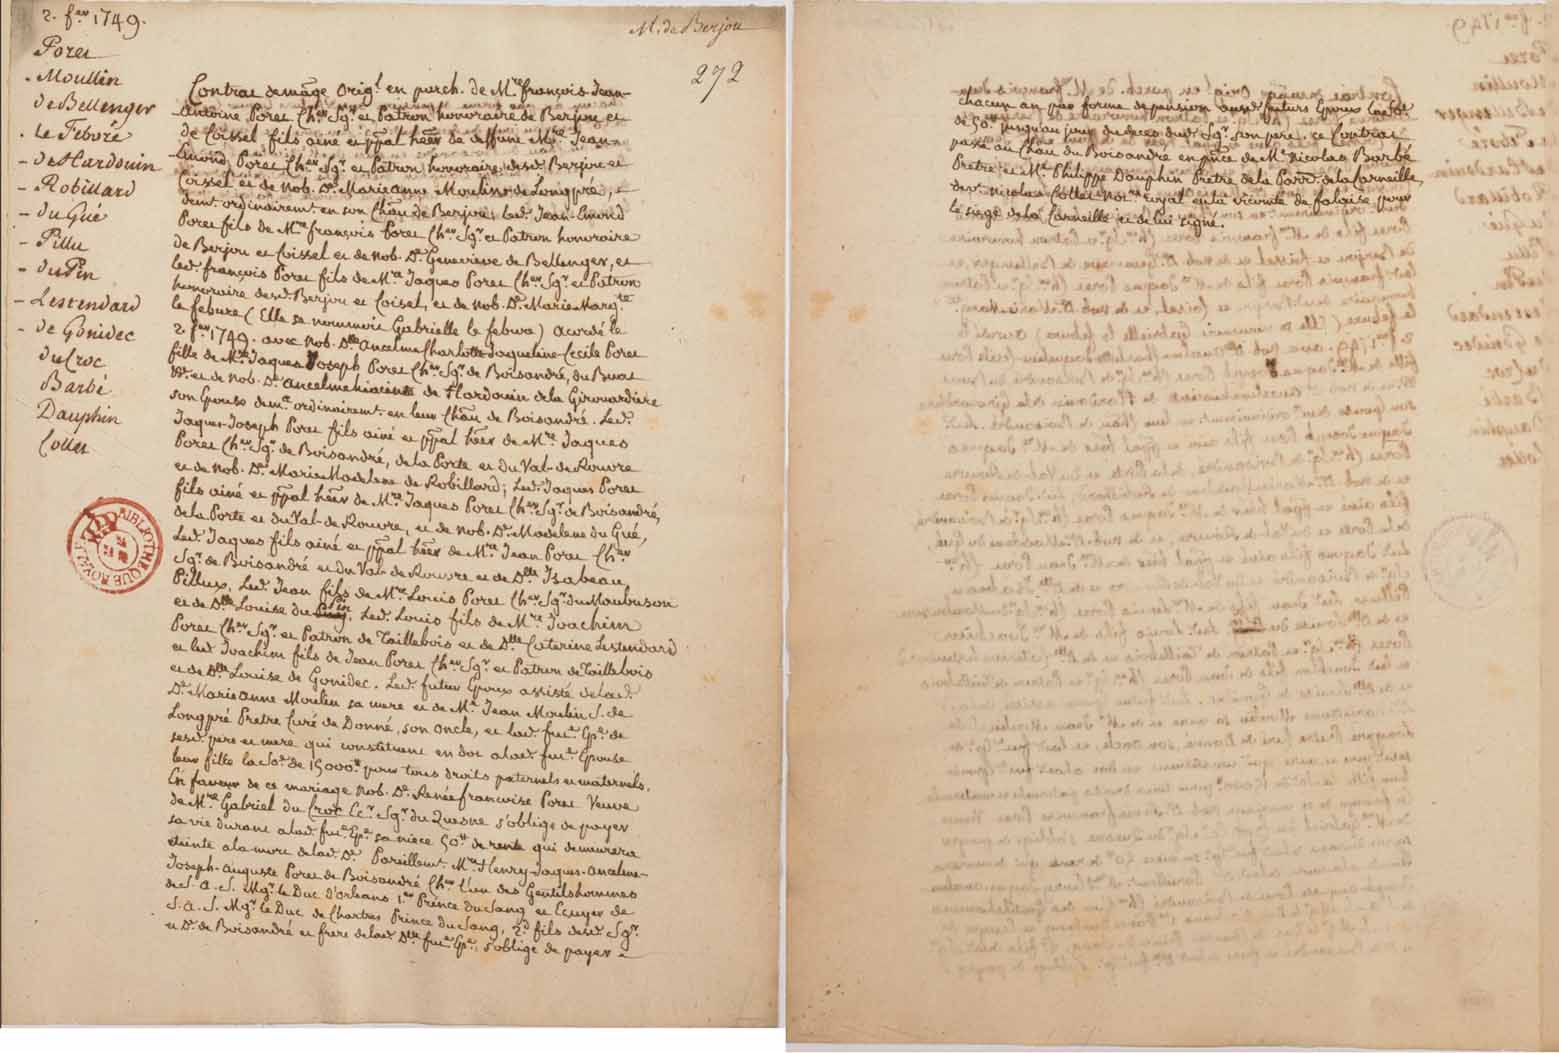 2. fev 1749.
M. de Berjou
272
Poret
- Moullin
de Bellenger
. le Febvre
- de Hardouin
- Robillard
- du Gué
- Pillu
- du Pin
- Lestendard
- de Gonidec
du Croc
Barbé
Dauphin
Collet
Contrat de mãge Origl. en parch. de Mre. françois-Jean-
Antoine Poret Cher. Sgr. et Patron honoraire de Berjou et
de Coissel fils ainé et ppal heer de deffunt Mre. Jean-
Emond Poret Cher. Sgr. et Patron honoraire desd. Berjou et
Coissel et de Nob. De. Marie anne Moulin de Longpré,
demt. ordinairement en son Chãu de Berjou; led. Jean-Emond
Poret fils de Mre. françois Poret Cher. Sgr. et Patron honoraire
de Berjou et Coissel et de nob. De. Genevieve de Bellenger, et
led. françois Poret fils de Mre. Jaques Poret Cher. Sgr. et Patron
honoraire desd. Berjou et Coisel, et de nob. De. Marie Margte.
le febure (Elle se nommoit Gabrielle le febure) acordé le
2. fev. 1749. avec Nob. Dlle. Ancelme Charlotte Jaqueline-Cecile Poret
fille de Mre. Jaques Joseph Poret Cher. Sgr. de Boisandré, du Buat
&c. et de Nob. De. Ancelme hiacinte de Hardouin de la Girouardiere
son Epouse demt. ordinairement en leur Chãu de Boisandré. Led.
Jaques-Joseph Poret fils ainé et ppal heer de Mre. Jaques
Poret Cher. Sgr. de Boisandré, de la Porte et du Val-de Rouvre
et de nob. De. Marie Madelene de Robillard; Led. Jaques Poret
fils ainé et ppal heer de Mre. Jaques Poret Cher. Sgr. de Boisandré,
de la Porte et du Val-de Rouvre, et de nob. De. Madelene du Gué,
Led. Jaques fils ainé et ppal heer de Mre. Jean Poret Cher.
Sgr. de Boisandré et du Val-de Rouvre et de Dlle. Isabeau
Pillux. Led. Jean fils de Mre. Louis Poret Cher. Sgr. du Moubuson
et de Dlle. Louise du Pin. Led. Louis fils de Mre. Joachim
Poret Cher. Sgr. et Patron de Taillebois et de Dlle. Caterine Lestendard
et led. Joachim fils de Jean Poret Cher. Sgr. et Patron de Taillebois
et de Dlle. Louise de Gonidec. Led. futur Epoux assisté de lad.
De. Marie anne Moulin sa mere et de Mre. Jean Moulin S. de
Longpré Pretre Curé de Donné, son oncle, et lad. fute. Epe. de
sesd. pere et mere qui constituent en dot a lad. fute. Epouse
leur fille la Se. de 15000tt pour tous droits paternels et maternels.
En faveur de ce mariage Nob. De. Renée francoise Poret Veuve
de Mre. Gabriel du Croc Ecr. Sgr. du Quesne s'oblige de payer
sa vie durant a lad. fute. Epe. sa niece 50tt de rente qui demurera
eteinte a la mort de lad. De. Pareillemt. Mre. Henry-Jaques-Ancelme-
Joseph-Auguste Poret de Boisandré Cher. l'un des Gentilshommes
de S. A. S. Mgr. le Duc d'Orleans 1er. Prince du Sang et Ecuyer de
S. A. S. Mgr. le Duc de Chartres Prince du Sang, 2d. fils desd. Sgr.
et De. de Boisandré et frere de lad. Dlle. fute. Epe. s'oblige de payer
BIBLIOTHEQUE ROYALE
chacun an par forme de pension ausd. futurs Epoux la Se.
de 50tt jusqu'au jour du deces dud. Sgr. son pere. Ce Contrat
passé au Chãu de Boisandré en pnce de Me. Nicolas Barbé
Pretre et Me. Philippe Dauphin Pretre de la Parr. de la Carneille,
devt. Nicolas Collet Notre. royal en la vicomté de falaise pour
le siege de la Carneille et de lui signé.